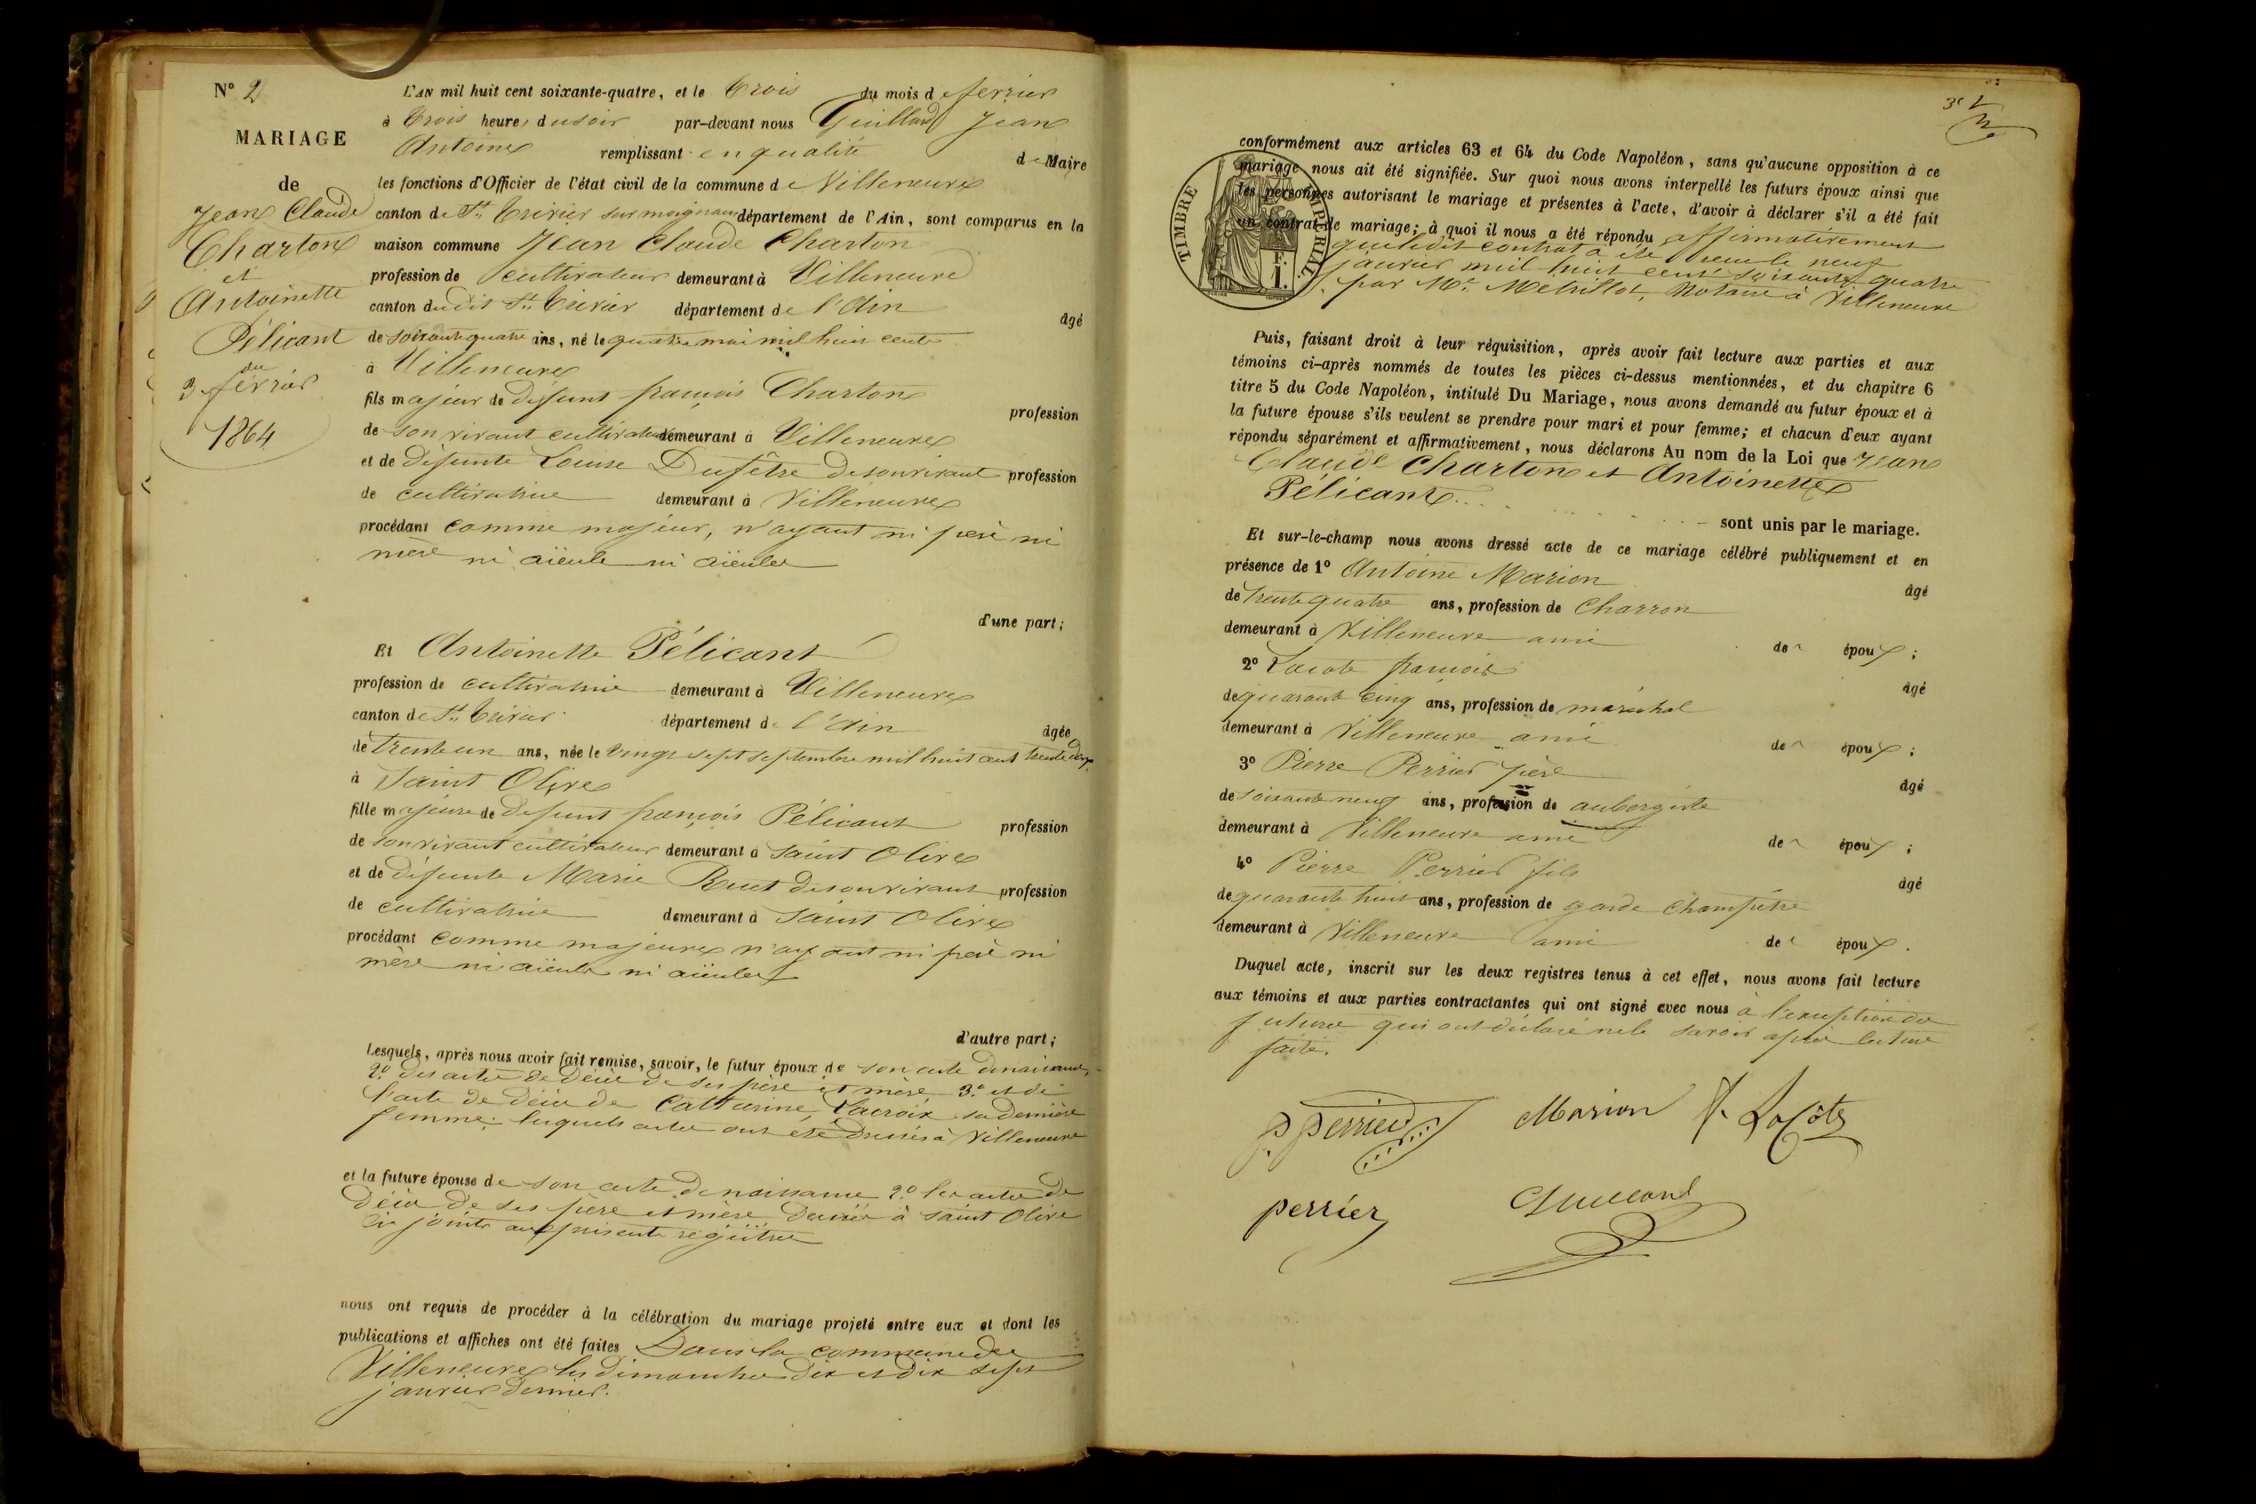 N° 2
MARIAGE
de
Jean Claude
Charton
et
Antoinette
Pélicant
du
3 février
1864
L'AN mil huit cent soixante-quatre, et le trois du mois de février
à trois heures du soir par-devant nous Guillard Jean
Antoine remplissant en qualité de Maire
les fonctions d'Officier de l'état civil de la commune de Villeneuve
canton de St Trivier sur moignans département de l'Ain, sont comparus en la
maison commune Jean Claude Charton
profession de cultivateur demeurant à Villeneuve
canton du dit St Trivier département de l'Ain âgé
de soixante quatre ans, né le quatre mai mil huit cent
à Villeneuve
fils majeur de défunt françois Charton profession
de son vivant cultivateur demeurant à Villeneuve
et de défunte Louise Dufêtre de son vivant profession
de cultivatrice demeurant à Villeneuve
procédant comme majeur, n'ayant ni père ni
mère ni aïeuls ni aïeules
d'une part;
Et Antoinette Pélicant
profession de cultivatrice demeurant à Villeneuve
canton de St Trivier département de l'Ain âgée
de trente un ans, née le vingt sept septembre mil huit cent trente deux
à Saint Olive
fille majeure de défunt françois Pélicant profession
de son vivant cultivateur demeurant à Saint Olive
et de défunte Marie de son vivant profession
de cultivatrice demeurant à Saint Olive
procédant comme majeure n'ayant ni père ni
mère ni aïeuls ni aïeules
d'autre part;
Lesquels, après nous avoir fait remise, savoir, le futur époux de son acte de naissance,
2° des actes de décès de ses père et mère 3° et de
l'acte de décès de Catherine Lacroix sa dernière
femme; lesquels actes ont été dressés à Villeneuve
et la future épouse de son acte de naissance 2° les actes de
décès de ses père et mère dressés à Saint Olive
ci joints au présent régistre
nous ont requis de procéder à la célébration du mariage projeté entre eux et dont les
publications et affiches ont été faites Dans la commune de
Villeneuve les dimanches dix et dix sept
janvier dernier.
TIMBRE IMPÉRIAL.
F.
1.
conformément aux articles 63 et 64 du Code Napoléon, sans qu'aucune opposition à ce
mariage nous ait été signifiée. Sur quoi nous avons interpellé les futurs époux ainsi que
les personnes autorisant le mariage et présentes à l'acte, d'avoir à déclarer s'il a été fait
un contrat de mariage; à quoi il nous a été répondu affirmativement
que le dit contrat a été reçu le neuf
janvier mil huit cent soixante quatre
par Me Metrillot, Notaire à Villeneuve
Puis, faisant droit à leur réquisition, après avoir fait lecture aux parties et aux
témoins ci-après nommés de toutes les pièces ci-dessus mentionnées, et du chapitre 6
titre 5 du Code Napoléon, intitulé Du Mariage, nous avons demandé au futur époux et à
la future épouse s'ils veulent se prendre pour mari et pour femme; et chacun d'eux ayant
répondu séparément et affirmativement, nous déclarons Au nom de la Loi que Jean
Claude Charton et Antoinette
Pélicant sont unis par le mariage.
Et sur-le-champ nous avons dressé acte de ce mariage célébré publiquement et en
présence de 1° Antoine Marion âgé
de trente quatre ans, profession de Charron
demeurant à Villeneuve ami de époux;
2° Lacote françois âgé
de quarante cinq ans, profession de maréchal
demeurant à Villeneuve ami de époux;
3° Pierre Perrier père âgé
de soixante neuf ans, profession de aubergiste
demeurant à Villeneuve ami de époux;
4° Pierre Perrier fils âgé
de quarante huit ans, profession de garde champêtre
demeurant à Villeneuve ami de époux.
Duquel acte, inscrit sur les deux registres tenus à cet effet, nous avons fait lecture
aux témoins et aux parties contractantes qui ont signé avec nous à l'exception des
futurs qui ont déclaré ne le savoir après lecture
faite.
p perrier Marion f. Lacôte
perrier Guillard